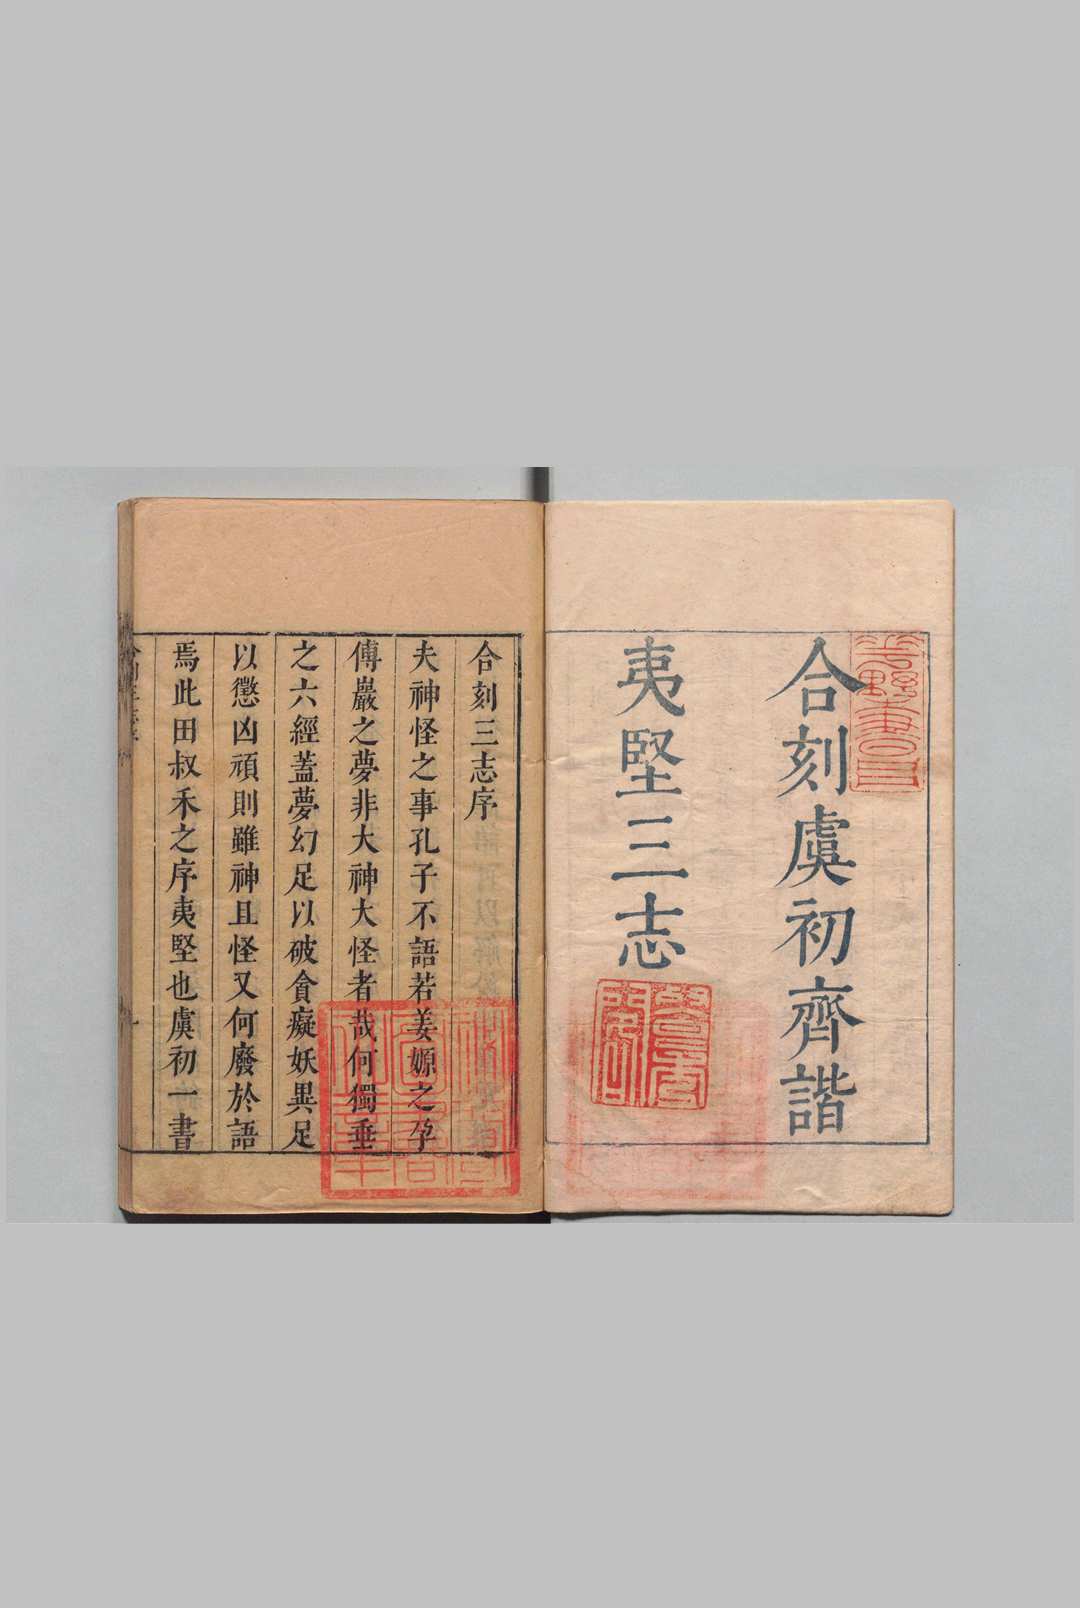 合刻虞初齊諧
夷堅三志
合刻三志序
夫神怪之事孔子不語若姜嫄之孕
傅巖之夢非大神大怪者哉何獨垂
之六經蓋夢幻足以破貪癡妖異足
以懲凶頑則雖神且怪又何廢於語
焉此田叔禾之序夷堅也虞初一書